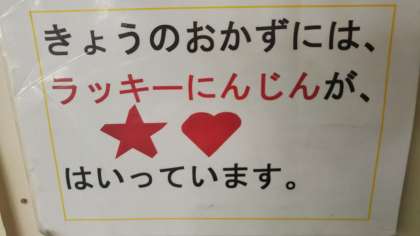 きょうのおかずには、
ラッキーにんじんが、
★ ♥
はいっています。